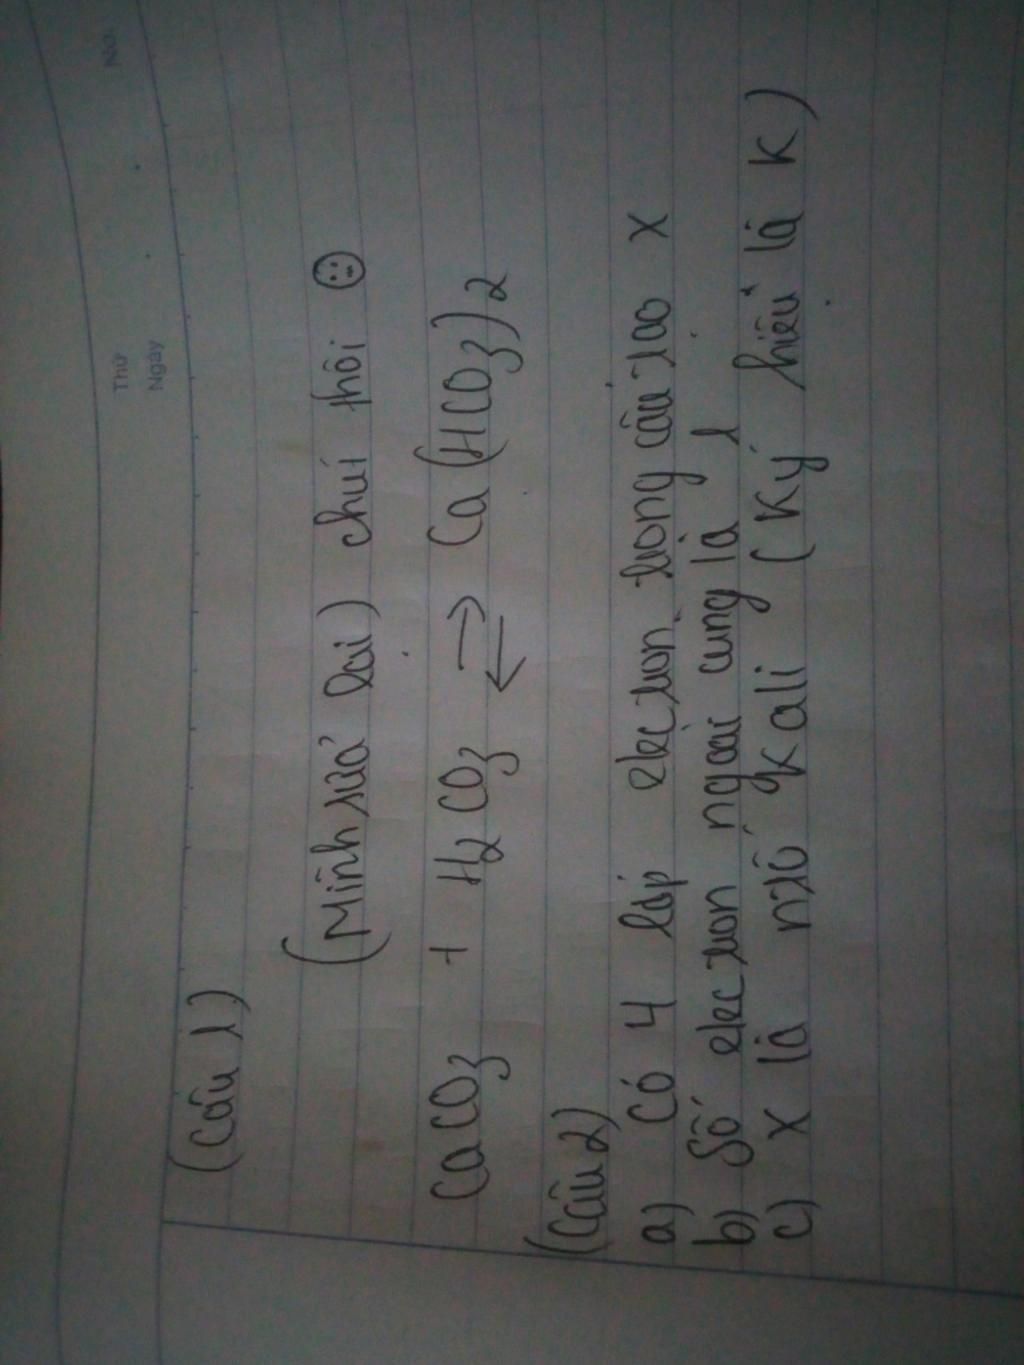 No.
Thứ
Ngày
(Câu 1)
(Mình sửa lại) chút thôi
CaCO3 + H2CO3 ⇄ Ca(HCO3)2
(Câu 2)
a) Có 4 lớp electron trong cấu tạo X
b) Số electron ngoài cùng là 1
c) X là n.tố Kali (Ký hiệu là K)